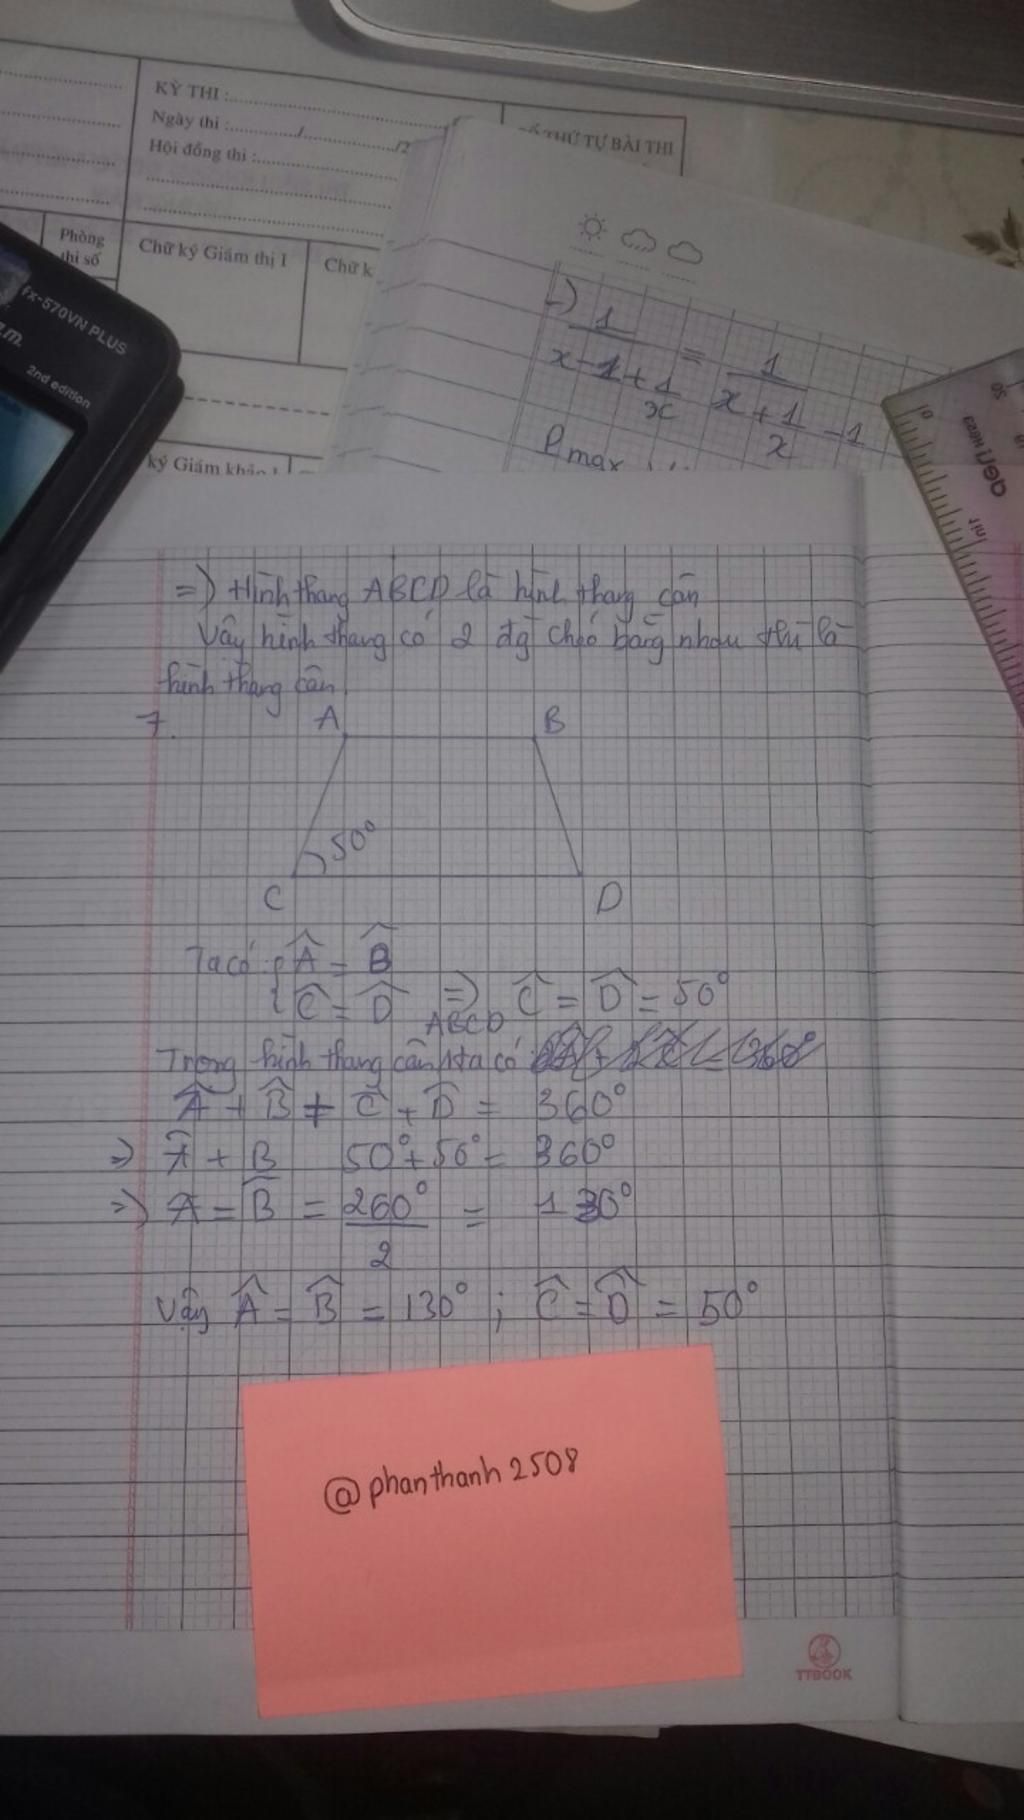 KỲ THI :
Ngày thi : / /2
Hội đồng thi :
SỐ THỨ TỰ BÀI THI
Phòng
thi số
Chữ ký Giám thị 1
Chữ k
fx-570VN PLUS
2nd edition
ký Giám khảo 1
=) 1/(x-1+1/x) = 1/(x+1/x-1)
Pmax
=) Hình thang ABCD là hình thang cân
Vậy hình thang có 2 đg chéo bằng nhau thì là
hình thang cân
7.
A B
50°
C D
Ta có : { Â = B̂
Ĉ = D̂ => Ĉ = D̂ = 50°
ABCD
Trong hình thang cân ta có
Â + B̂ + Ĉ + D̂ = 360°
=> Â + B 50° + 50° = 360°
=> Â = B̂ = 260°/2 = 130°
Vậy Â = B̂ = 130° ; Ĉ = D̂ = 50°
@phanthanh2508
TTBOOK